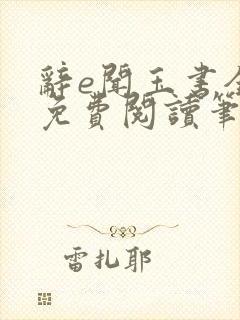 辭e聞玉書全
免費閱讀筆
雷扎耶